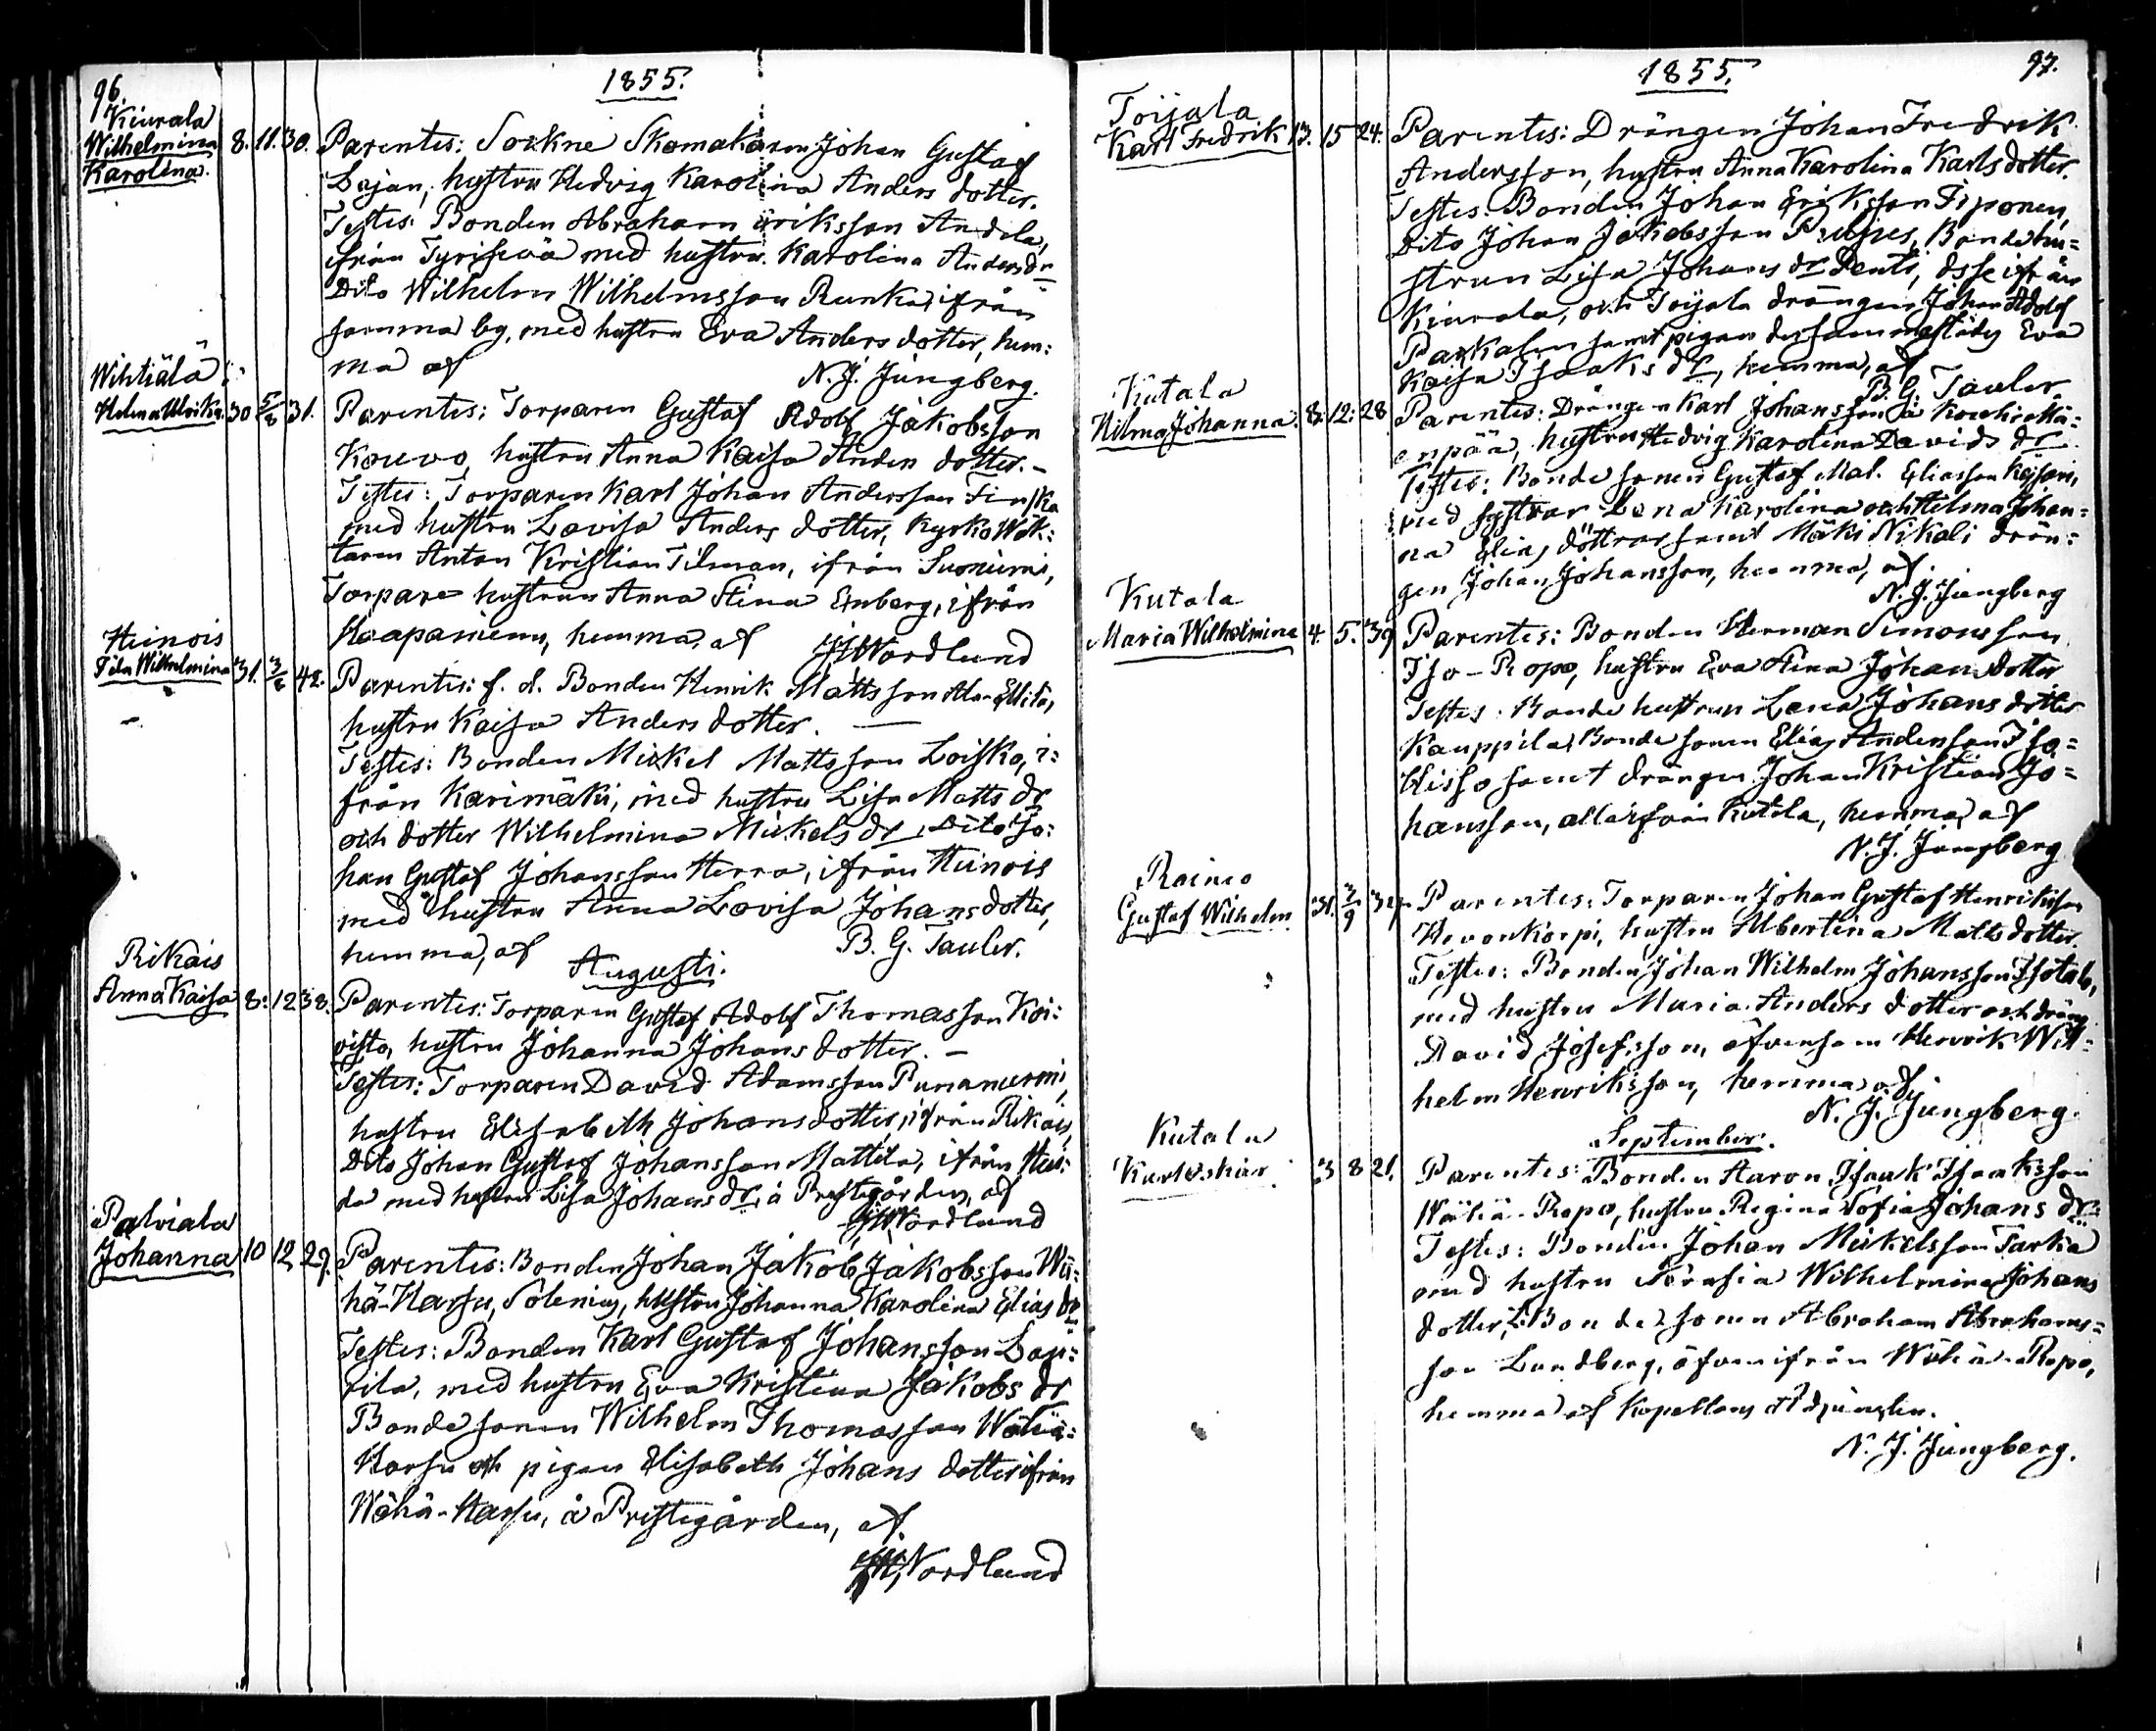 96.
1855.
Kiurala
Wilhelmina 8. 11. 30. Parentes: Sockne Skomakaren Johan Gustaf
Karolina.
Lajan, hustru Hedvig Karolina Anders dotter.
Testes: Bonden Abraham Eriksson Andila,
ifrån Tyrisevä med hustru Karolina Andersdr
Dito Wilhelm Wilhelmsson Runka, ifrån
samma by, med hustru Eva Anders dotter, hem:
ma af
N. J. Jungberg.
Wihtiälä
Helena Ulrika. 30 5/8 31. Parentes: Torparen Gustaf Adolf Jakobsson
Kouvo, hustru Anna Kaisa Anders dotter. –
Testes: Torparen Karl Johan Andersson Finska
med hustru Lovisa Anders dotter, KyrkoWäk:
taren Anton Kristian Tilman, ifrån Suoniemi,
Torpare hustrun Anna Stina Enberg, ifrån
Haapaniemi, hemma, af
Nordlund
Heinois
Fila Wilhelmina 31. 3/8 42. Parentes: f. d. Bonden Henrik Mattsson Ala-Ellilä,
hustru Kaisa Anders dotter. —
Testes: Bonden Mickel Mattsson Loisko, i:
från Karimäki, med hustru Lisa Matts dr
och dotter Wilhelmina Mickels dr, Dito Jo:
han Gustaf Johansson Herra, ifrån Heinois
med hustru Anna Lovisa Johansdotter,
hemma, af
B. G. Tauler.
Augusti.
Rikais
Anna Kaisa 8: 12 38. Parentes: Torparen Gustaf Adolf Thomasson Koi:
visto, hustru Johanna Johans dotter. –
Testes: Torparen David Adamsson Punanurmi,
hustru Elisabeth Johansdotter, ifrån Rikais,
Dito Johan Gustaf Johansson Mattila, ifrån
da med hustru Lisa Johans dr, å Prestgården, af
Nordlund
Palviala
Johanna 10 12 29. Parentes: Bonden Johan Jakob Jakobsson Wä:
hä-Harsu, Solenius, hustru Johanna Karolina Elias dr
Testes: Bonden Karl Gustaf Johansson Lau:
rila, med hustru Eva Kristina Jakobs dr
Bonde sonen Wilhelm Thomasson Wähä:
Harsu och pigan Elisabeth Johans dotter ifrån
Wähä-Harsu, å Prestegården, af
Nordlund
97.
1855.
Toijala
Karl Fredrik 13. 15 24. Parentes: Drängen Johan Fredrik
Andersson, hustru Anna Karolina Karls dotter.
Testes: Bonden Johan Eriksson Piponen,
Dito Johan Jakobsson Prusses, Bondehu=
strun Lisa Johans dr Penti, desse ifrån
Kiurala, och Toijala drängen Johan Adolf
samt pigan dersammastädes Eva
Kaisa Isaaks dr, hemma, af
B. G. Tauler
Kutala
Hilma Johanna. 8. 12: 28 Parentes: Drängen Karl Johansson å
enpää, hustru Hedvig Karolina Davids dr
Testes: Bonde sonen Gustaf Mat. Eliasson
med systrar Lena Karolina och Helma Johan=
na Elias döttrar samt Mäki Nikali drän=
gen Johan Johansson, hemma, af
N. J. Jungberg
Kutala
Maria Wilhelmina 4. 5. 39 Parentes: Bonden Herman Simonsson
Iso-Ropo, hustru Eva Stina Johans dotter
Testes: Bonde hustrun Lena Johans dotter
Kauppila, Bonde sonen Elias Andersson Iso=
Hisso samt drängen Johan Kristian Jo=
hansson, alla ifrån Kutala, hemma, af
N. J. Jungberg
Rainio
Gustaf Wilhelm 31. 3/9 34. Parentes: Torparen Johan Gustaf Henriksson
Hevonkorpi, hustru Albertina Matts dotter.
Testes: Bonden Johan Wilhelm Johansson Isotalo,
med hustru Maria Anders dotter och dräng.
David Josefsson, äfvensom Henrik Wil=
helm Henriksson, hemma af
N. J. Jungberg.
September.
Kutala
Karl Oskar 3 8 21. Parentes: Bonden Aaron Isaak Isaaksson
Wähä-Ropo, hustru Regina Sofia Johans dr.
Testes: Bonden Johan Mickelsson Tarka
med hustru Serafia Wilhelmina Johans
dotter, Bonde sonen Abraham Abrahams=
son Lundberg, äfven ifrån Wähä-Ropo,
hemma af Kapellans Adjunkten.
N. J. Jungberg.